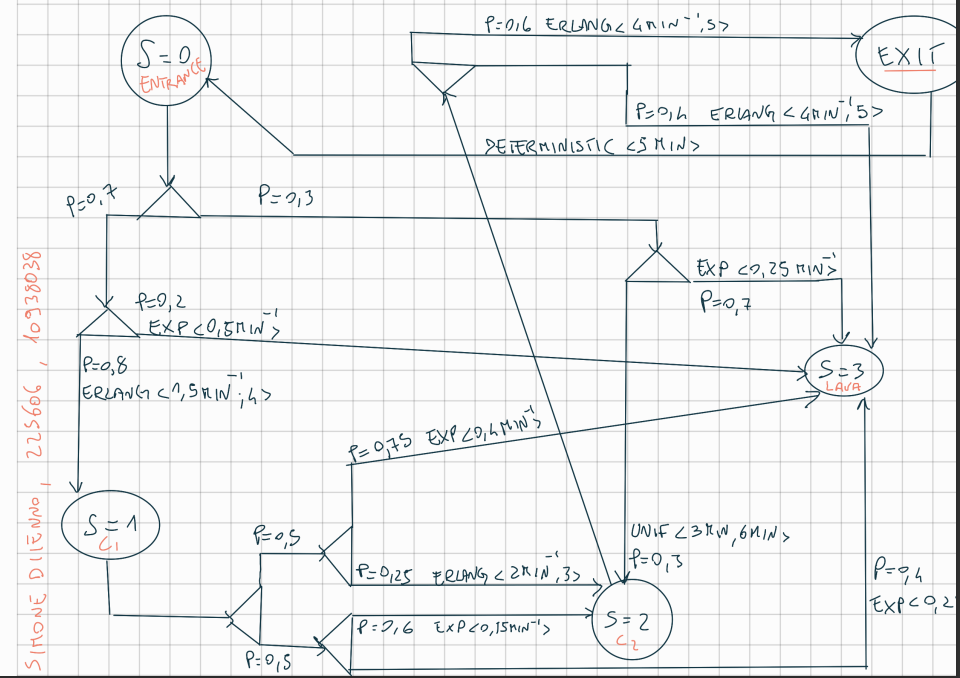 P=0,6 ERLANG<4MIN⁻¹,5>
S=0
ENTRANCE
EXIT
P=0,4 ERLANG<4MIN⁻¹,5>
DETERMINISTIC <5 MIN>
P=0,7
P=0,3
EXP <0,25 MIN⁻¹>
P=0,7
P=0,2
EXP<0,5MIN⁻¹>
P=0,8
ERLANG<1,5MIN⁻¹,4>
S=3
LAVA
P=0,75 EXP<0,4MIN⁻¹>
S=1
C1
P=0,5
UNIF <3MIN,6MIN>
P=0,3
P=0,25 ERLANG<2MIN⁻¹,3>
P=0,6 EXP<0,15MIN⁻¹>
S=2
C2
P=0,5
P=0,4
EXP<0,2
SIMONE DIIENNO, 225606, 10938038